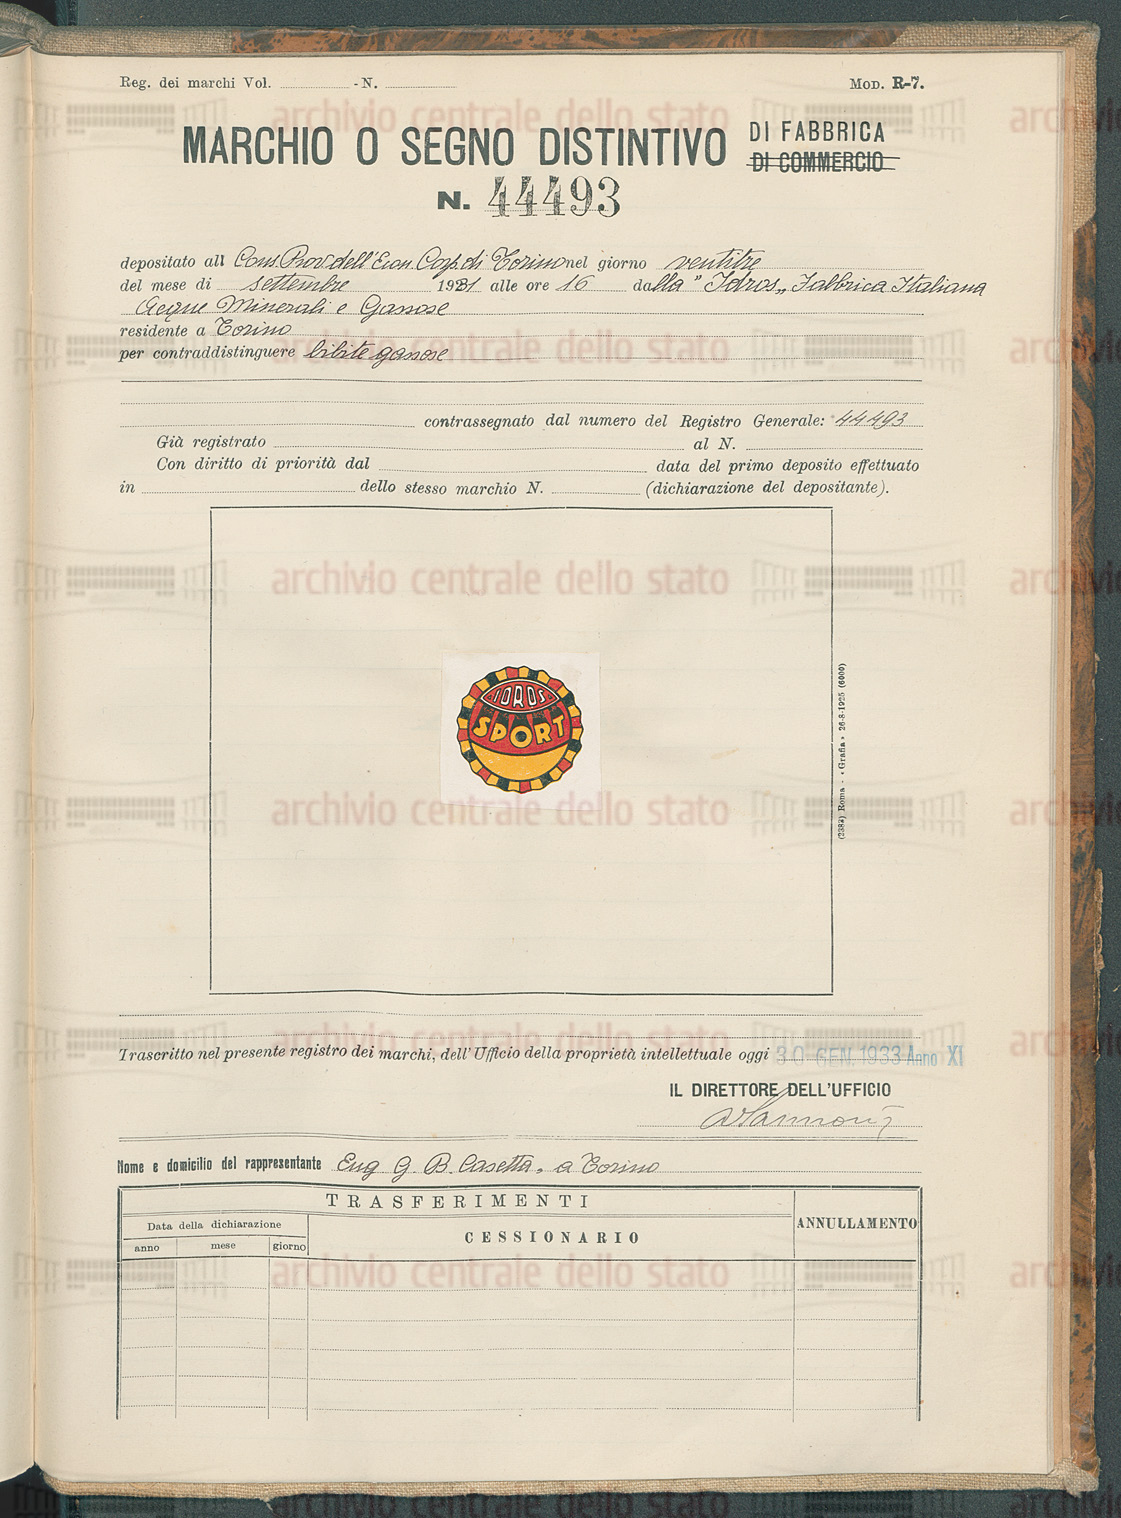 Reg. dei marchi Vol. - N.
Mod. R-7.
MARCHIO O SEGNO DISTINTIVO DI FABBRICA
DI COMMERCIO
N. 44493
depositato all Cons. Prov. dell'Econ. Corp. di Torino nel giorno ventitre
del mese di settembre 1931 alle ore 16 dalla "Idros" Fabbrica Italiana
Acque Minerali e Gassose
residente a Torino
per contraddistinguere bibite gassose
contrassegnato dal numero del Registro Generale: 44493
Già registrato al N.
Con diritto di priorità dal data del primo deposito effettuato
in dello stesso marchio N. (dichiarazione del depositante).
IDROS
SPORT
(2383) Roma - «Grafia» 26-8-1925 (6000)
Trascritto nel presente registro dei marchi, dell'Ufficio della proprietà intellettuale oggi 30 GEN. 1933 Anno XI
IL DIRETTORE DELL'UFFICIO
Nome e domicilio del rappresentante Eug. G. B. Casetta, a Torino
TRASFERIMENTI
ANNULLAMENTO
Data della dichiarazione
CESSIONARIO
anno mese giorno
archivio centrale dello stato